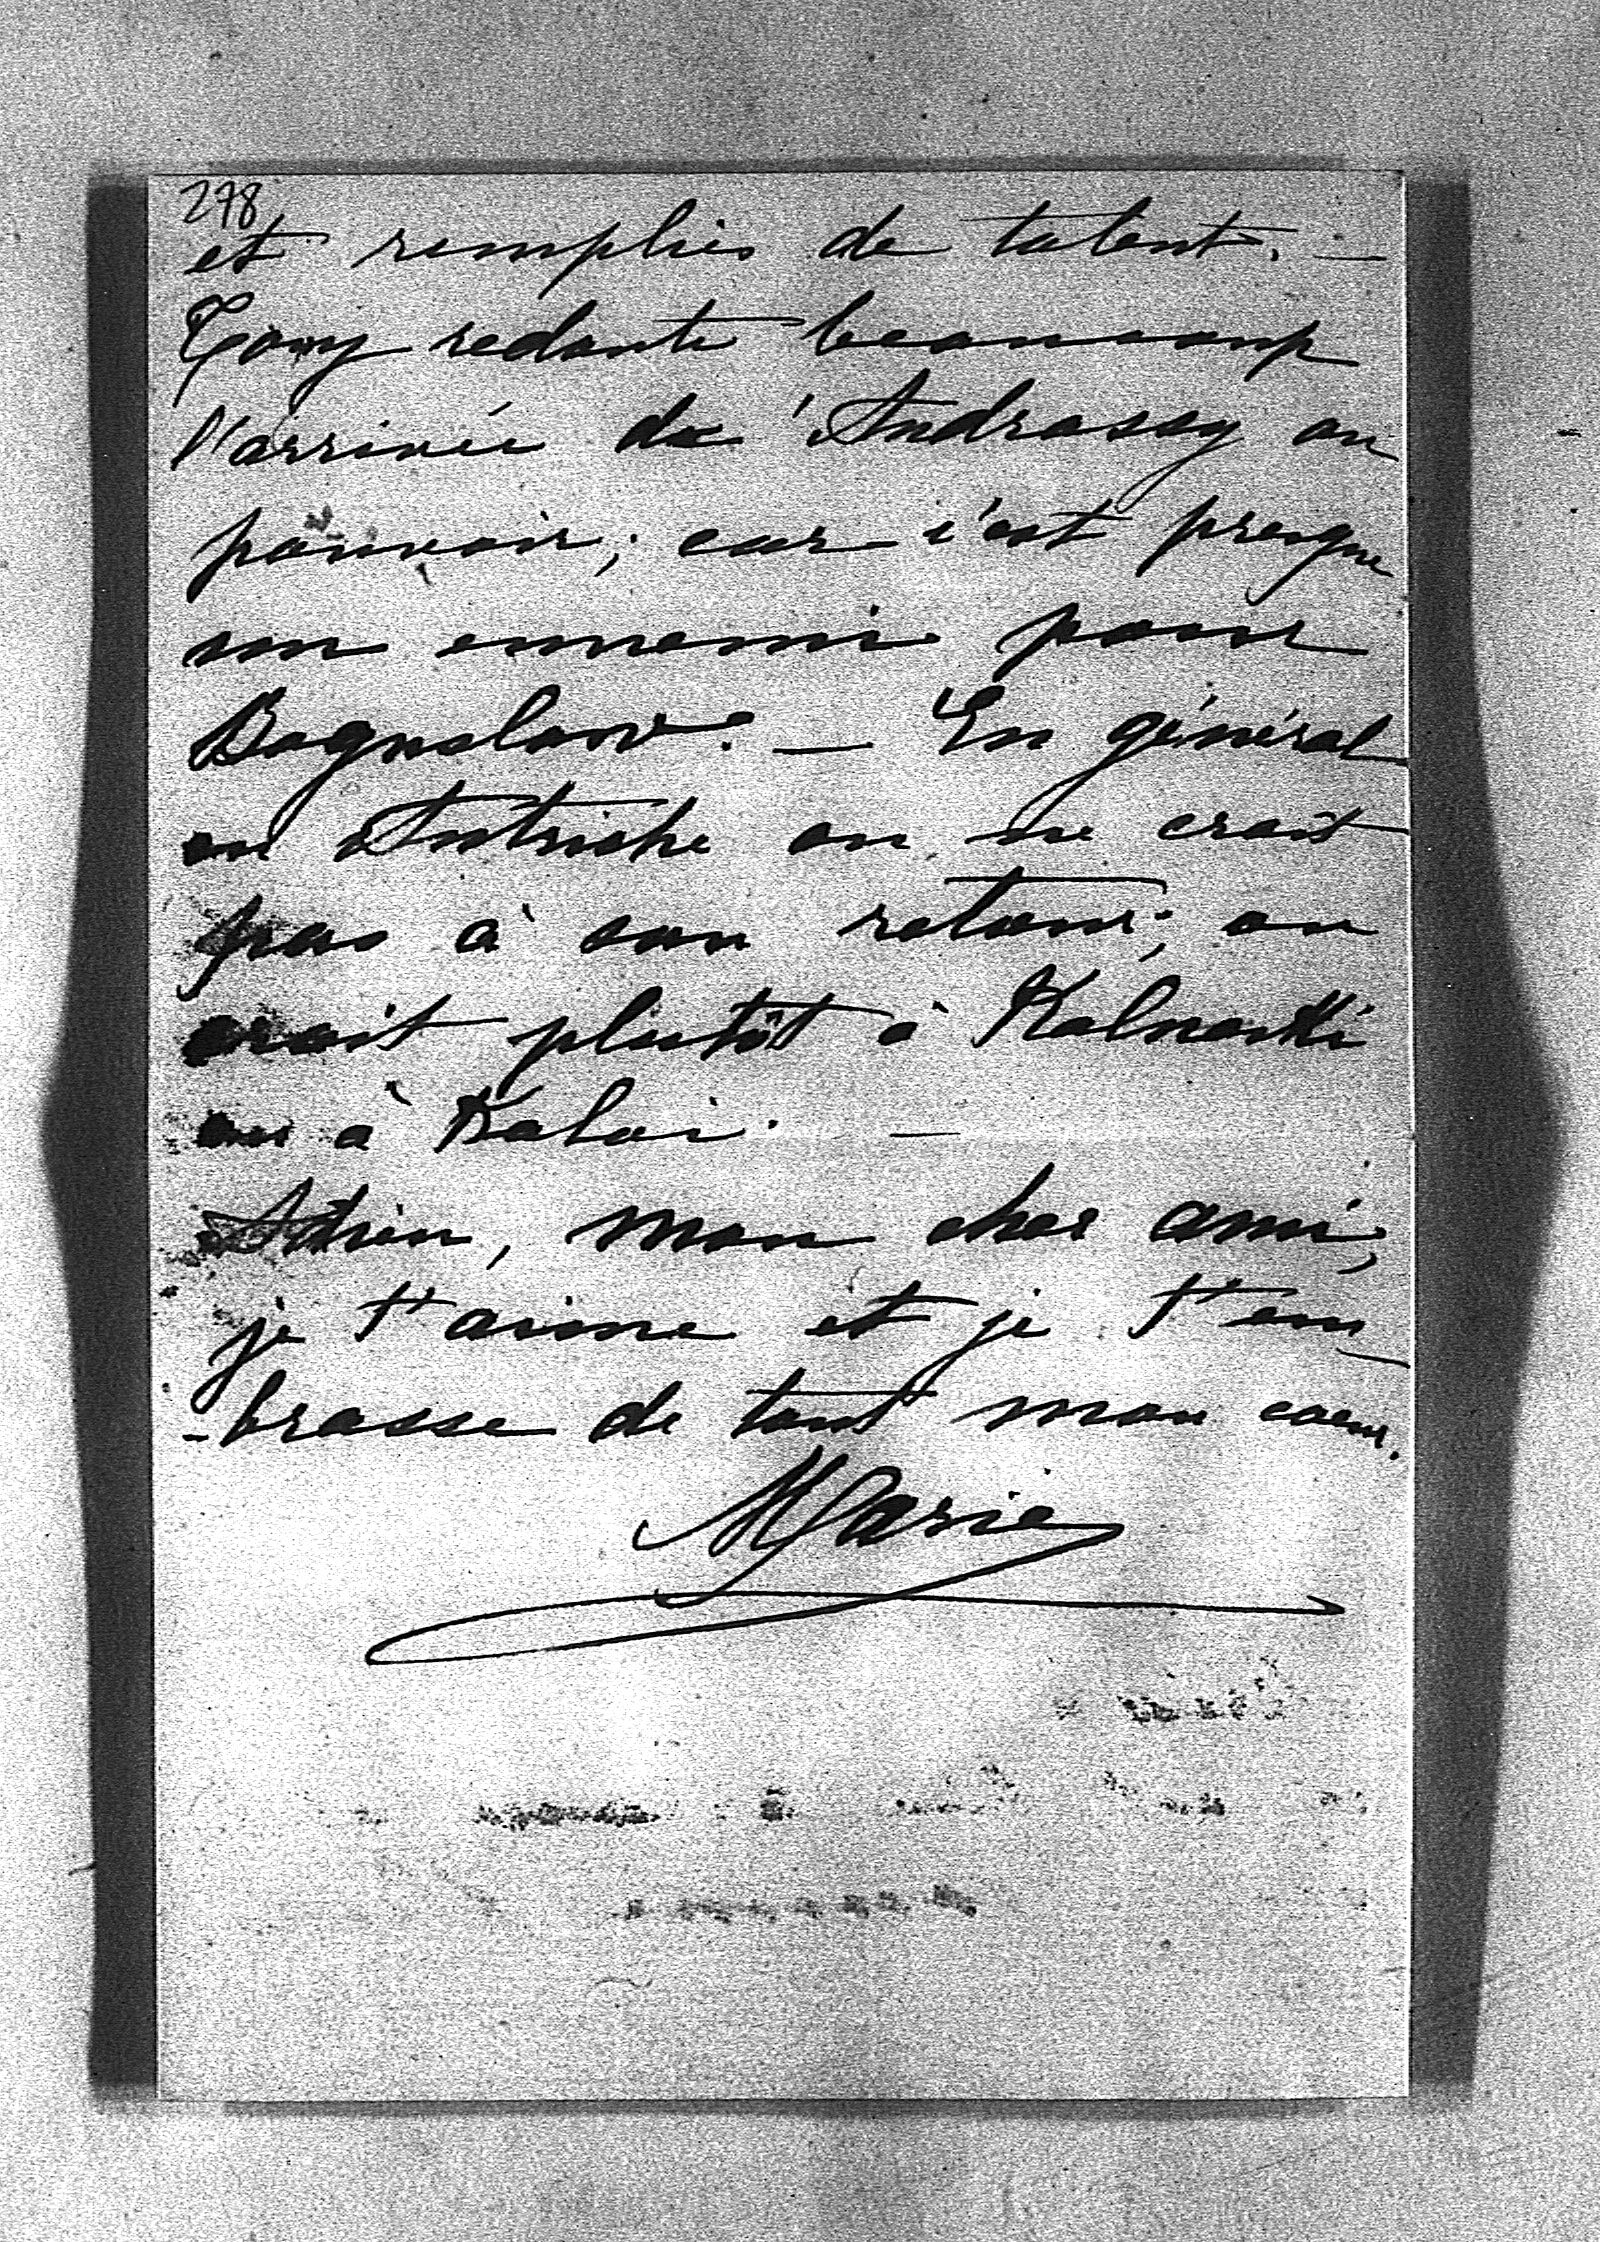 278
et remplies de talent. —
Tony redoute beaucoup
l'arrivée de 'Andrassy au
pouvoir; car c'est presque
un ennemi pour
Boguslaw. — En général
en Autriche on ne croit
pas à son retour; on
croit plutôt à Kalnocki
ou à Kaloi. —
Adieu, mon cher ami,
je t'aime et je t'em
-brasse de tout mon coeur.
Marie